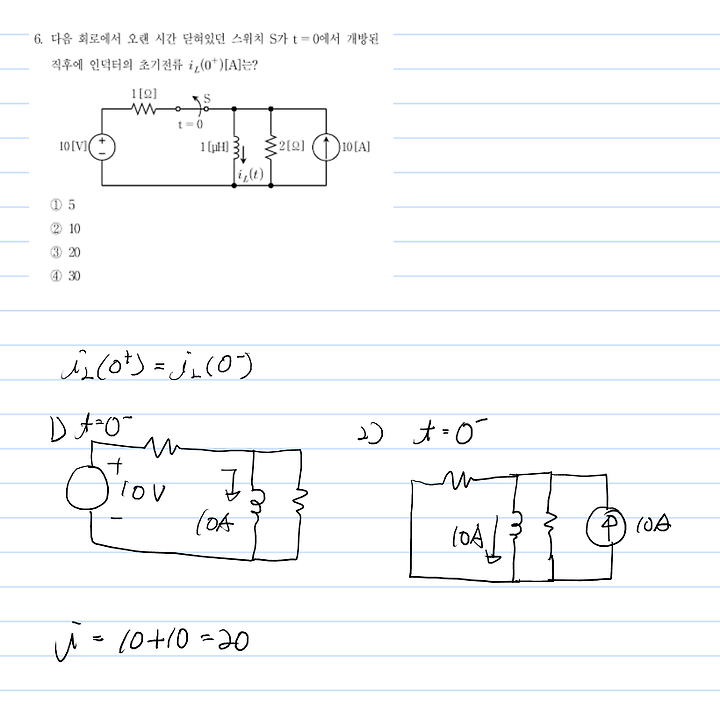 6. 다음 회로에서 오랜 시간 닫혀있던 스위치 S가 t = 0에서 개방된
직후에 인덕터의 초기전류 i_L(0⁺)[A]는?
1[Ω]
S
t = 0
10[V]
+
−
1[μH]
2[Ω]
10[A]
i_L(t)
① 5
② 10
③ 20
④ 30
i_L(0⁺) = i_L(0⁻)
1) t=0⁻
+
10V
−
10A
2) t=0⁻
10A
10A
i = 10+10 = 20